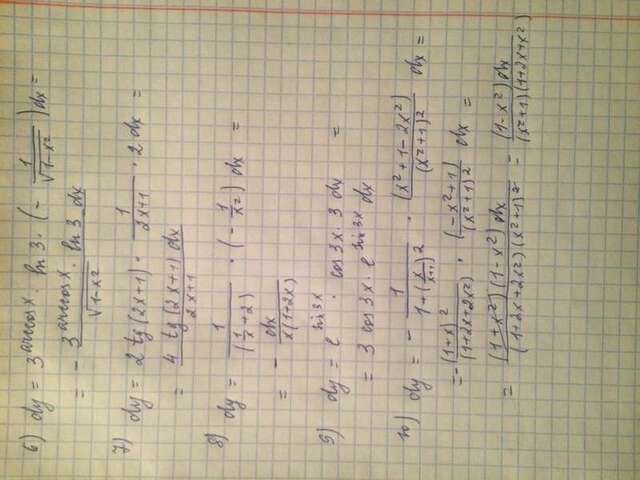 6) dy = 3^(arccos x) · ln 3 · (- 1/√(1-x²)) dx =
= - (3^(arccos x) · ln 3 dx)/√(1-x²)
7) dy = 2 tg(2x+1) · 1/(2x+1) · 2 dx =
= (4 tg(2x+1) dx)/(2x+1)
8) dy = 1/(1/x + 2) · (- 1/x²) dx =
= - dx/(x(1+2x))
9) dy = e^(sin 3x) · cos 3x · 3 dx =
= 3 cos 3x · e^(sin 3x) dx
10) dy = - 1/(1+(x/(x+1))²) · (x²+1-2x²)/(x²+1)² dx =
= - (1+x)²/(1+2x+2x²) · (-x²+1)/(x²+1)² dx =
= ((1+x²)(1-x²) dx)/((1+2x+2x²)(x²+1)²) - ((1-x²) dx)/((x²+1)(1+2x+x²))